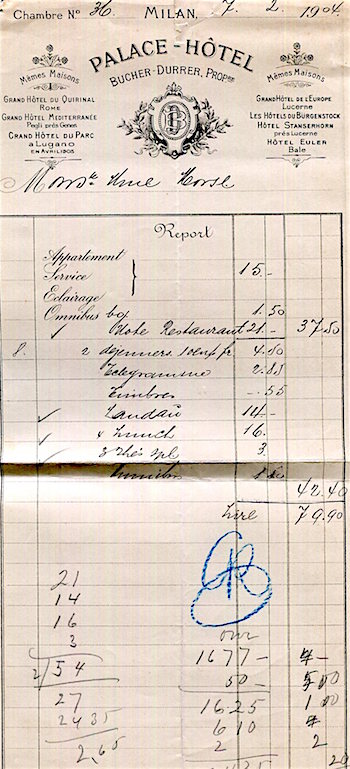 Chambre No 36 Milan, 7. 2. 1904
PALACE-HÔTEL
BUCHER-DURRER, PROPRE
Mêmes Maisons
GRAND HÔTEL DU QUIRINAL
ROME
GRAND HÔTEL MEDITERRANÉE
Pegli près Gênes
GRAND HÔTEL DU PARC
à LUGANO
EN AVRIL 1905
BD
Mêmes Maisons
GRAND HÔTEL DE L'EUROPE
Lucerne
LES HÔTELS DU BÜRGENSTOCK
HÔTEL STANSERHORN
près Lucerne
HÔTEL EULER
Bâle
Report
Appartement
Service 15.-
Eclairage
Omnibus bg 1.50
Note Restaurant 21.- 37.50
8. 2 déjeuners 4.50
Telegramme
Timbres -.55
Landau 14.-
4 Lunch 16.
3 Thés cpl 3.
42.40
Lire 79.90
21
14
16
3
2/54
27
24 35
2,65
1677-
50-
1625
610
2